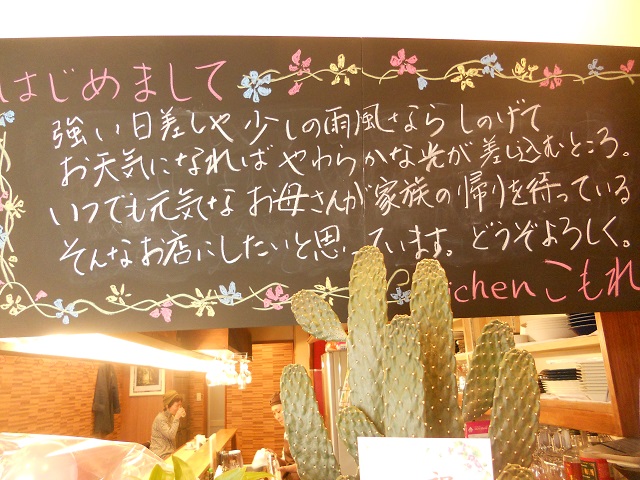 はじめまして
強い日差しや少しの雨風さならしのげて
お天気になればやわらかな光が差し込むところ。
いつでも元気なお母さんが家族の帰りを待っている
そんなお店にしたいと思っています。どうぞよろしく。
chenこもれ